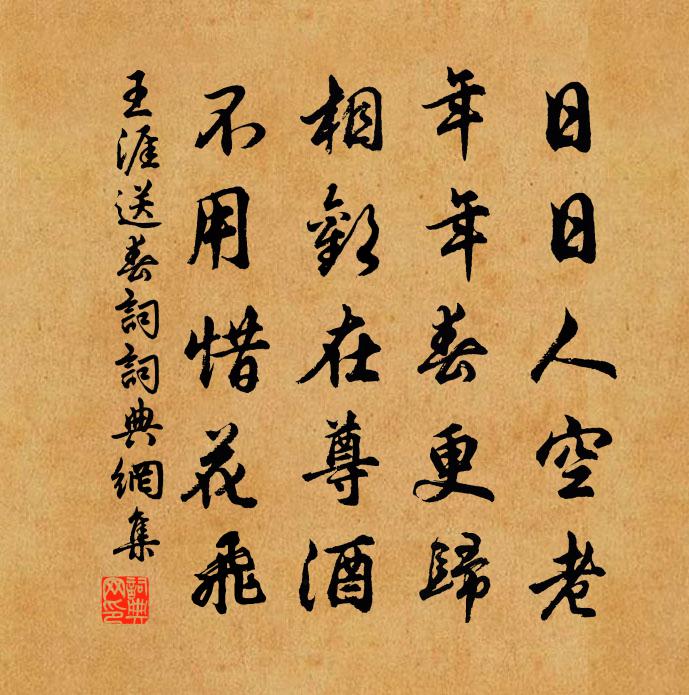 日日人空老
年年春更歸
相歡在尊酒
不用惜花飛
王涯送春詞詞典網集
詞典网印